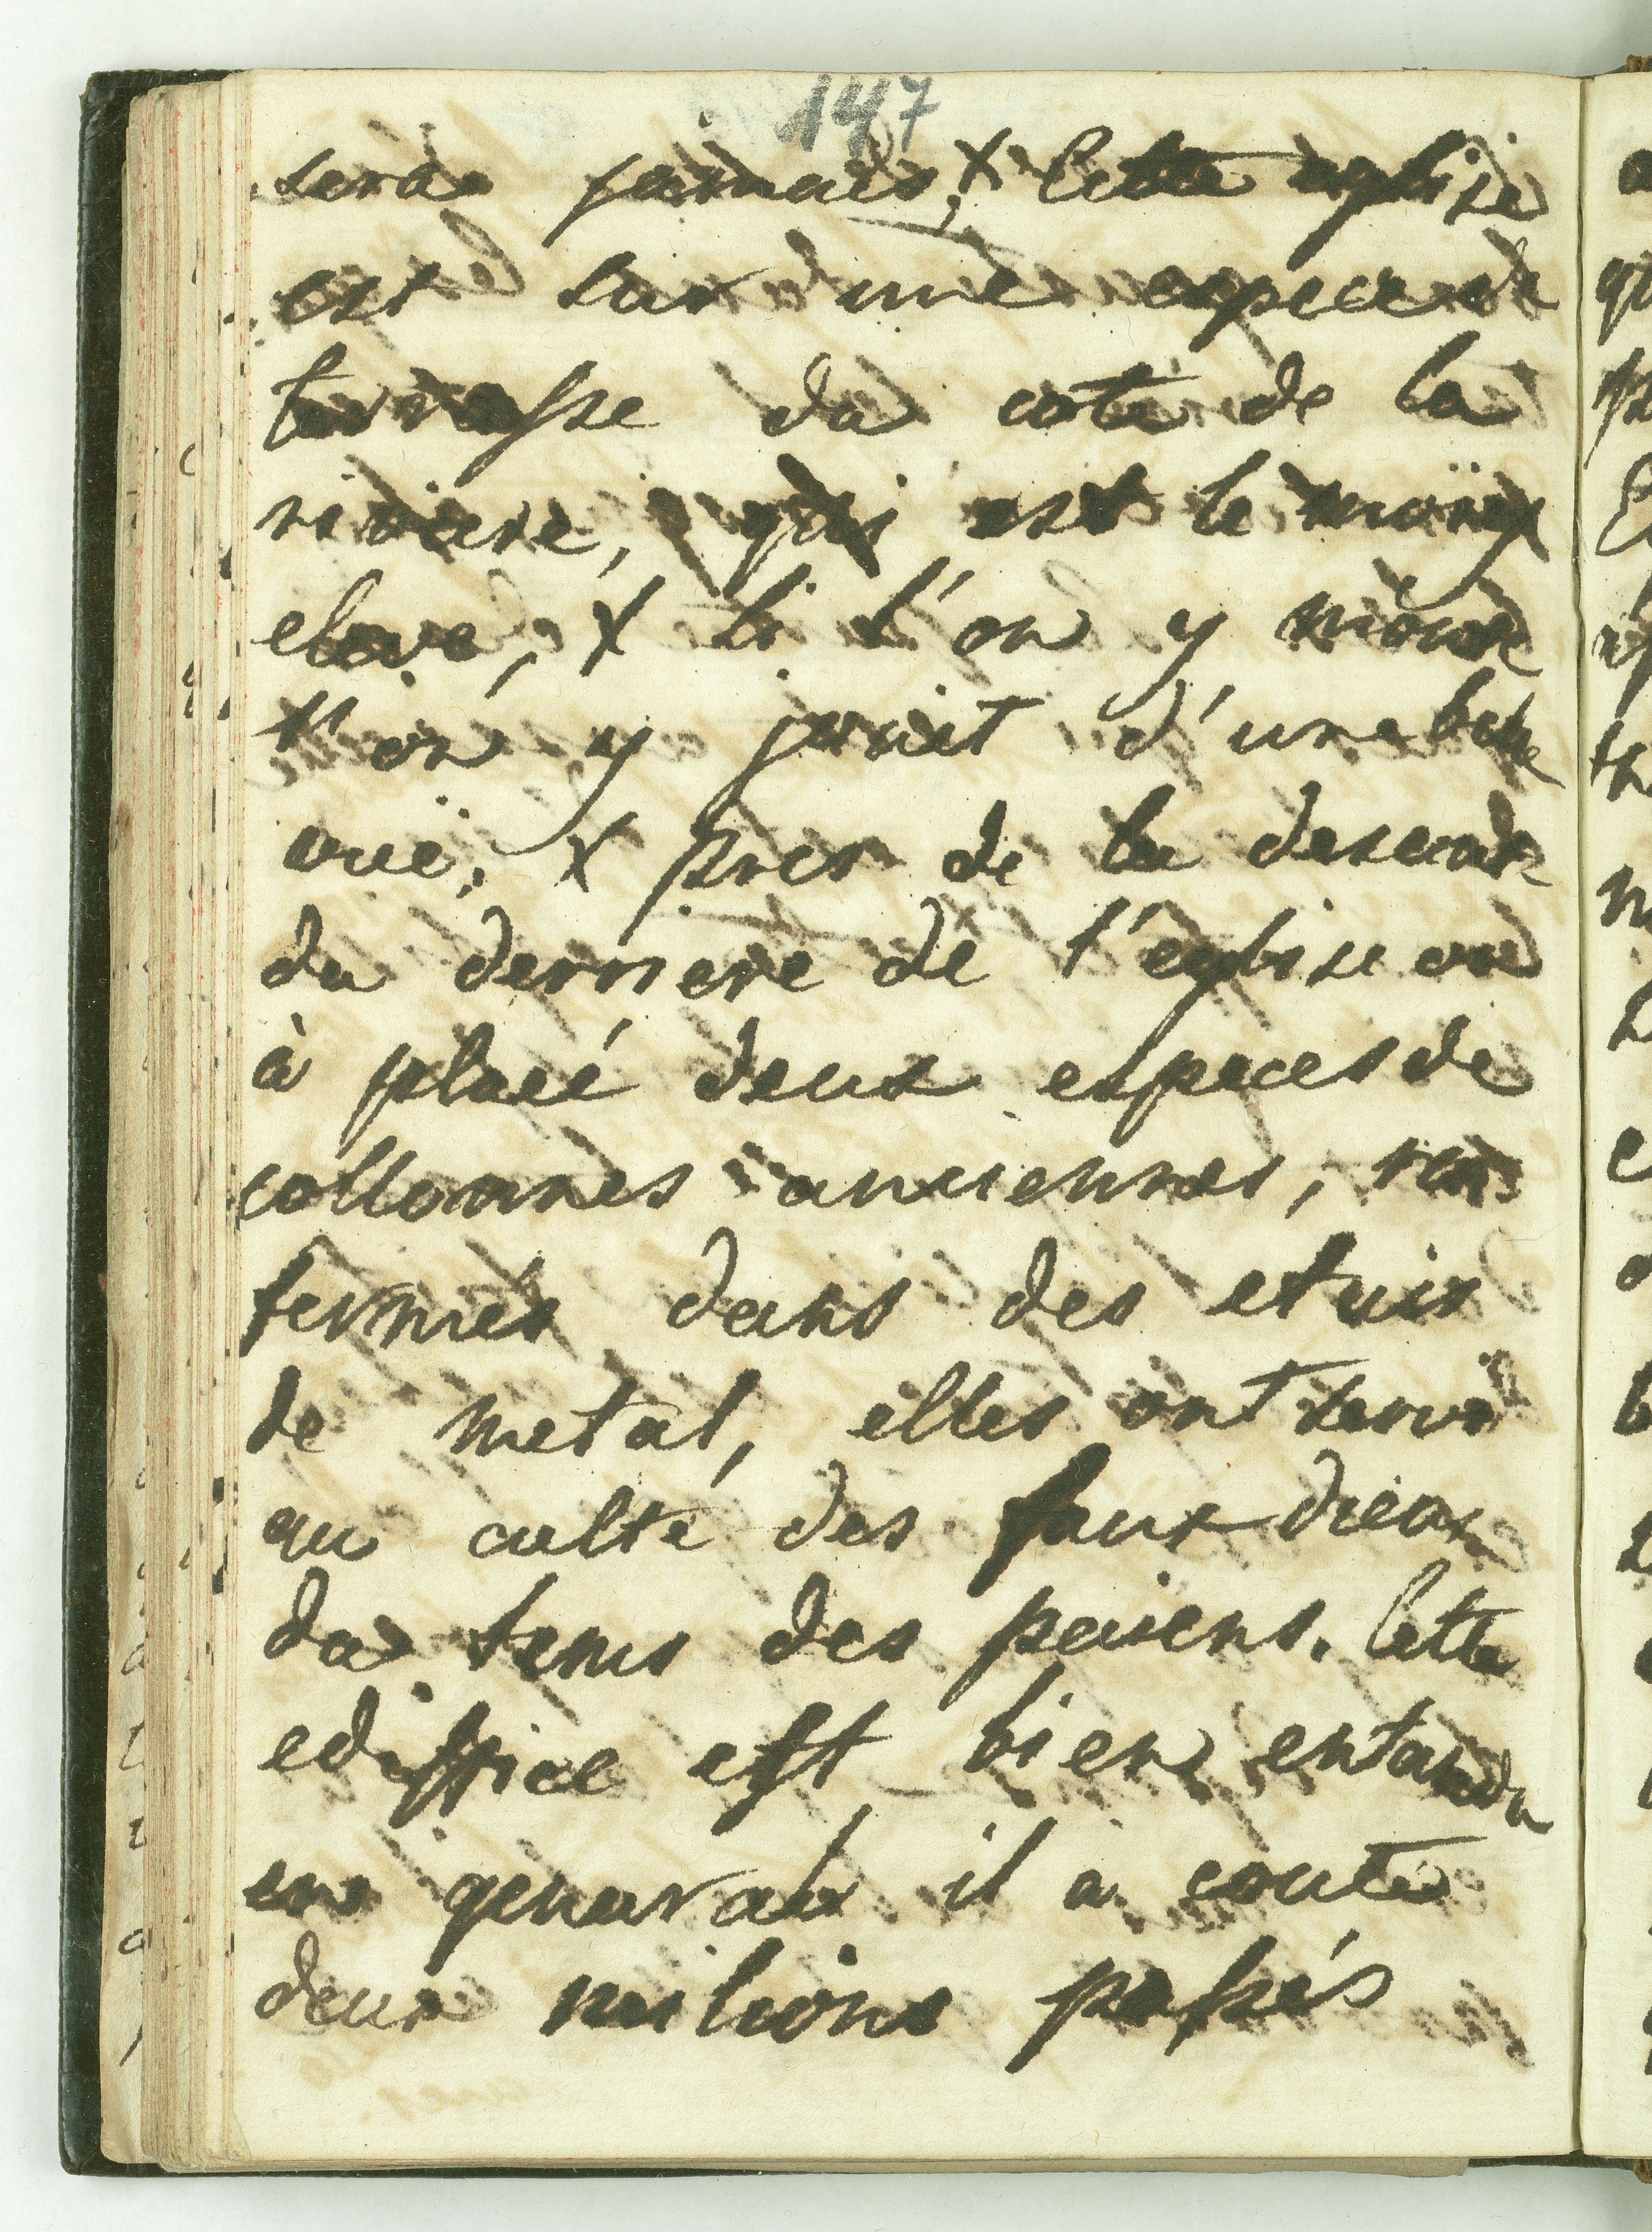 147
sera jamais, x Cette eglise
est sur une espece de
terrasse du coté de la
riviere, qui est le moins
eleve, x si l'on y monte
l'on y jouit d'une belle
vuë, x pres de la descente
du derriere de l'eglise on
à placé deux especes de
collonnes anciennes, ren:
fermés dans des etuis
de metal, elles ont servi
au culte des faux dieux
du tems des paiens. Cette
ediffice est bien entandu
en generale il a couté
deux milions passés